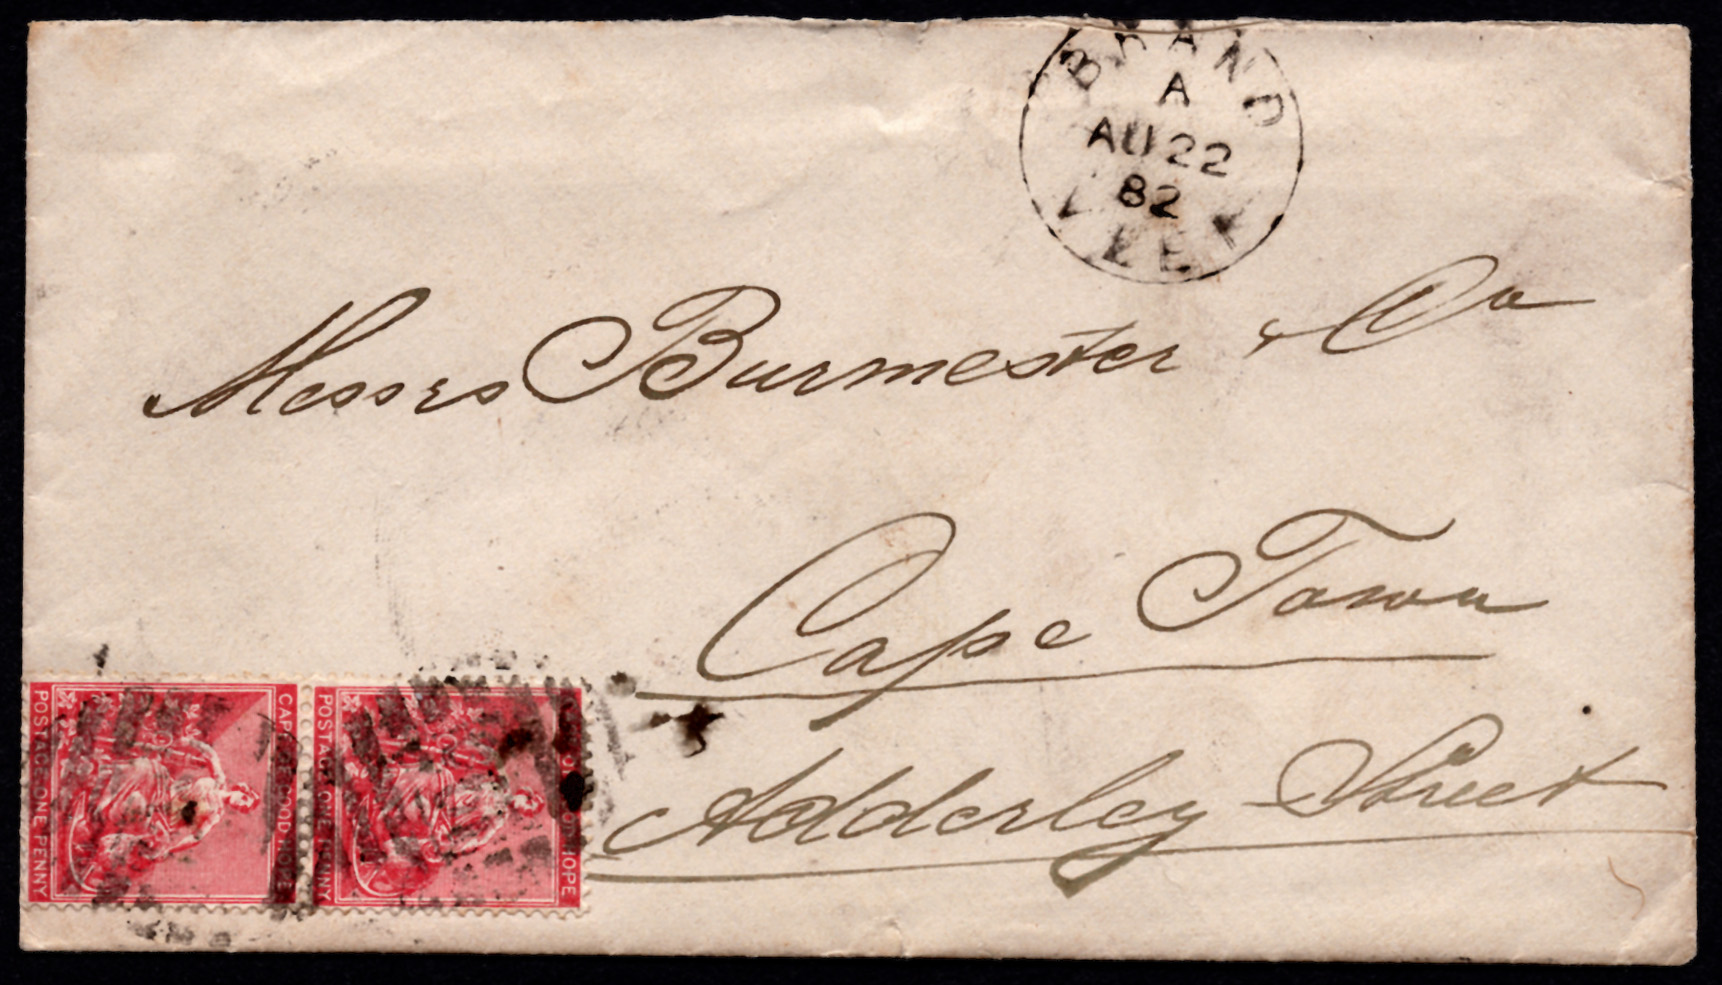 BRAND
A
AU 22
82
VLEI
Messrs Burmester & Co
Cape Town
Adderley Street
POSTAGE ONE PENNY
CAPE OF GOOD HOPE
POSTAGE ONE PENNY
CAPE OF GOOD HOPE